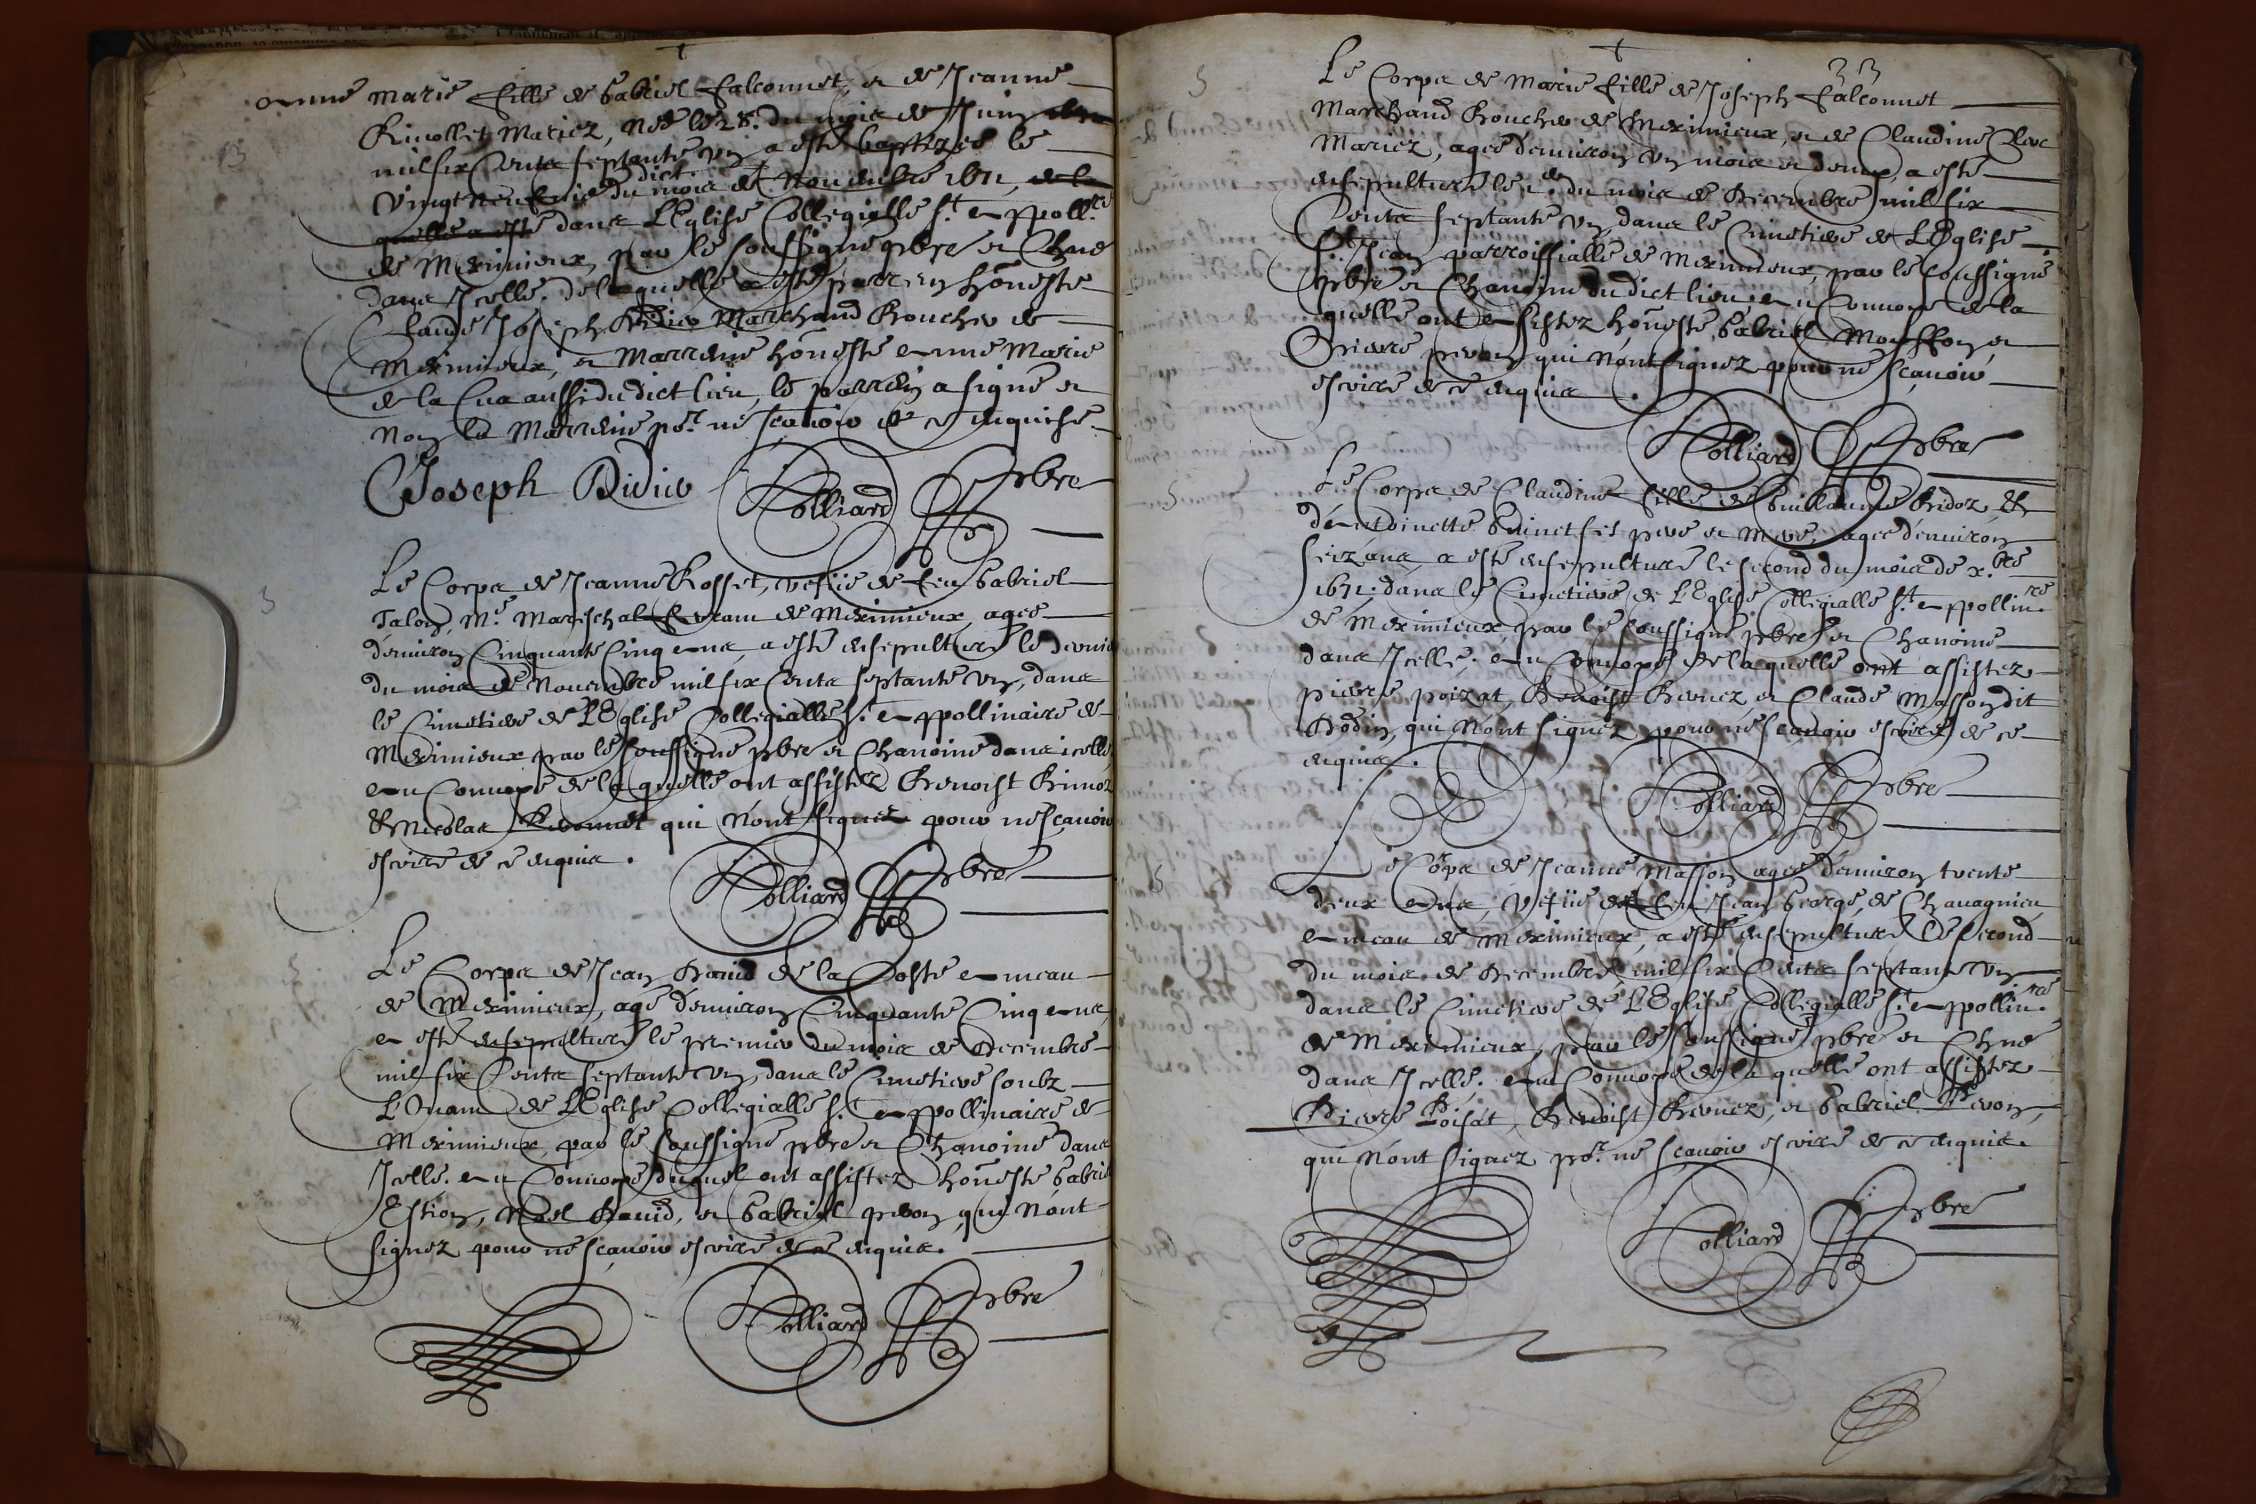 Anne Marie fille de Gabriel Falconnet, et de Jeanne
Mariez, née le 28. du mois de Juin
mil six Cents septante un a esté baptizée le
vingt neufvie du dict mois de Novembre 1671, de la
quelle a esté dans L'Eglise Collegialle St. Appollre
de Meximieux, par le soussigné pbre et Chne
dans Icelle. de laquelle a esté parrein honeste
Claude Joseph Didier Marchand Boucher de
Meximieux, et Marreine honeste Anne Marie
de la Cua aussi du dict lieu, le parrein a signé et
non la Marreine por. ne sçavoir de ce enquise
Joseph Didier Colliard pbre
Le Corps de Jeanne Rosset, vefiie de feu Gabriel
Talon, Me. Mareschal ferrant de Meximieux, agée
d'environ Cinquante Cinq Ans, a esté ensepulturé le dernier
du mois de Novembre mil six Cents septante un, dans
le Cimetiere de L'Eglise Collegialle St. Appollinaire de
Meximieux par le soussigné pbre et Chanoine dans icelle,
Au Convoye de la quelle ont assistez Benoist
& Nicolas qui n'ont signez pour ne sçavoir
escrire de ce enquis.
Colliard pbre
Le Corps de Jean David de la Coste Ameau
de Meximieux, agé d'environ Cinquante Cinq Ans,
A esté ensepulturé le premier du mois de Decembre
mil six Cents septante un, dans le Cimetiere soubz
L'Ovam de L'Eglise Collegialle St. Appollinaire de
Meximieux, par le soussigné pbre et Chanoine dans
Icelle. Au Convoye duquel ont assistez honeste Gabriel
Estion, Noel David, et Gabriel prevon, qui n'ont
signez pour ne sçavoir escrire de ce enquis.
Colliard pbre
33
Le Corps de Marie fille de Joseph Falconnet
Marchand Boucher de Meximieux, et de Claudine Clerc
Mariez, agée d'environ un mois et demy, a esté
ensepulturé le du mois de Decembre mil six
Cents septante un dans le Cimetiere de L'Eglise
St. Jean parroissialle de Meximieux, par le soussigné
pbre et Chanoine du dict lieu. Au Convoye de la
quelle ont Assistez honeste Gabriel et
Pierre prevon qui n'ont signez pour ne sçavoir
escrire de ce enquis.
Colliard pbre
Le Corps de Claudine fille de Guillaume Bidoz, &
d'Antoinette Guinet ses pere et mere, agée d'environ
seiz ans, a esté ensepulturé le second du mois de x.bre
1671. dans le Cimetiere de L'Eglise Collegialle St. Appollin.re
de Meximieux, par le soussigné pbre et Chanoine
dans Icelle. Au Convoye de la quelle ont assistez
pierre poizat, Benoist Bernez et Claude Masson dit
Bodin, qui n'ont signez pour ne sçavoir escrire de ce
enquis.
Colliard pbre
Le Corps de Jeanne Masson agée d'environ trente
deux Ans, vefiie de feu Jean George, de Chavagnieu
Ameau de Meximieux, a esté ensepulturé Le second
du mois de Decembre, mil six Cents septante un
dans le Cimetiere de L'Eglise Collegialle St. Appollin.re
de Meximieux, par le soussigné pbre et Chne
dans Icelle. Au Convoye de la quelle ont assistez
Pierre Poisat, Benoist Bernez, et Gabriel Prevon,
qui n'ont signez por. ne sçavoir escrire de ce enquis.
Colliard pbre